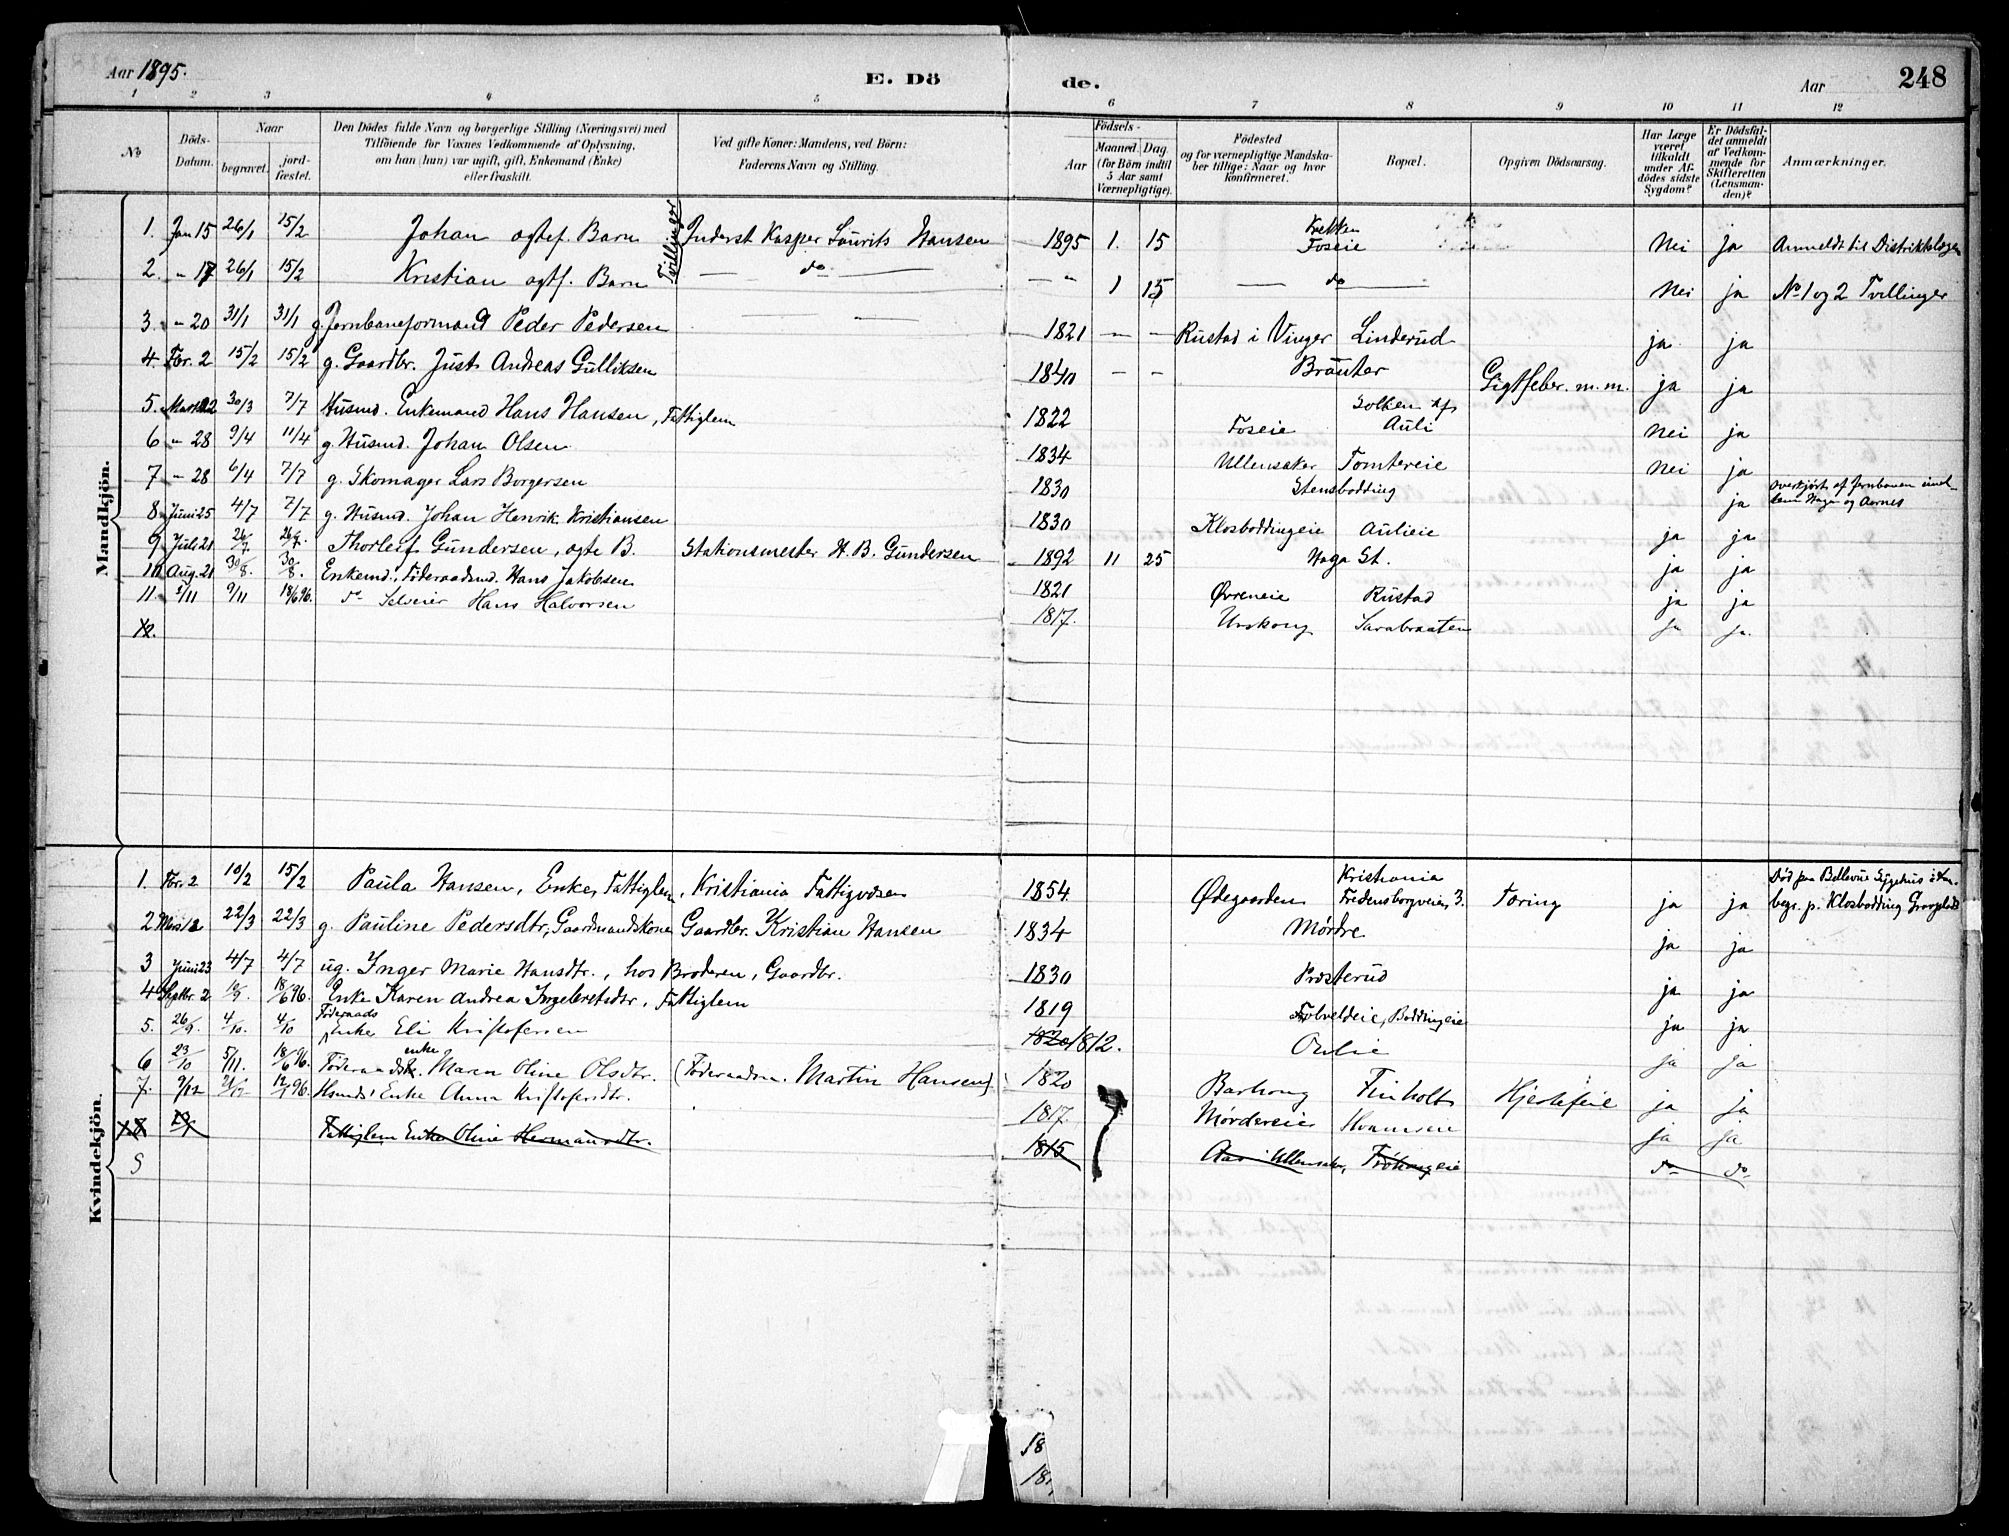 Aar 1895. E. Dö de. Aar 248
1 2 3 4 5 6 7 8 9 10 11 12
No Döds-Datum. Naar begravet. jord-fæstet. Den Dödes fulde Navn og borgerlige Stilling (Næringsvei) med Tilföiende for Voxnes Vedkommende af Oplysning, om han (hun) var ugift, gift, Enkemand (Enke) eller fraskilt. Ved gifte Koner: Mandens, ved Börn: Faderens Navn og Stilling. Födsels- Aar Maaned Dag (for Börn indtil 5 Aar samt Værnepligtige). Födested og for værnepligtige Mandska-ber tillige: Naar og hvor konfirmeret. Bopæl. Opgiven Dödsaarsag. Har Læge været tilkaldt under Af-dödes sidste Sygdom? Er Dödsfal-det anmeldt af Vedkom-mende for Skifteretten (Lensman-den)? Anmærkninger.
Mandkjön.
1. Jan 15 26/1 15/2 Johan ægtef. Barn Tvillinger Inderst Kasper Laurits Hansen 1895 1. 15 Foseie Nei ja Anmeldt til Distriktslægen
2. - 17 26/1 15/2 Kristian ægtf. Barn — do — — " 1 15 — do — Nei ja No 1 og 2 Tvillinger
3. - 20 31/1 31/1 g. Jernbaneformand Peder Pedersen 1821 — — Rustad i Vinger Linderud ja ja
4. Febr. 2 15/2 15/2 g. Gaardbr. Just Andreas Gulliksen 1840 - - Bräuter Gigtfeber. m.m. ja ja
5. Marts 22 30/3 7/7 Husmd. Enkemand Hans Hansen, Fattiglem 1822 Foseie Auli Nei ja
6 - 28 9/4 11/4 g. Husmd. Johan Olsen 1834 Ullensaker Tomtereie Nei ja
7 - 28 6/4 7/7 g. Skomager Lars Borgersen 1830 Stensbodding ja overkjört af Jernbanen imel-lem Haga og Aarnes
8 Juni 25 4/7 7/7 g. Husmd. Johan Henrik Kristiansen 1830 Klosboddingeie Aulieie ja ja
9 Juli 21 26/7 26/7. Thorleif Gundersen, ægte B. Stationsmester H. B. Gundersen 1892 11 25 Haga St. ja ja
10 Aug. 21 30/8. 30/8. Enkemd., Föderaadsmd. Hans Jakobsen 1821 Øvreneie Rustad ja ja
11. 1/11 9/11 18/6 96. do Selveier Hans Halvorsen 1817. Urskong Sarabraaten ja ja.
12.
Kvindekjön.
1. Febr. 2 10/2 15/2 Paula Hansen, Enke, Fattiglem, Kristiania Fattigvæsen 1854 Ødegaarden Kristiania Fredensborgveien 3. Tæring ja ja Död paa Bellevue Sygehus i Kra. begr. p. Klosbodding Gravplads
2 Mars 12 22/3 22/3 g. Pauline Pedersdtr, Gaardmandskone Gaardbr. Kristian Hansen 1834 Mørdre ja ja
3 Juni 23 4/7 4/7 ug. Inger Marie Hansdtr., hos Broderen, Gaardbr. 1830 Presterud ja ja
4 Septbr. 2 10/9. 18/6 96. Enke Karen Andrea Ingebretsdtr., Fattiglem 1819 Boddingeie ja ja
5. 26/9. 4/10. 4/10 Föderaads Enke Eli Kristofersen 1820 1812. Oulie ja ja
6 23/10 5/11. 18/6 96. Föderaadsk. enke Maren Oline Olsdtr. (Föderaadsm. Martin Hansen) 1820 Barkong Finholt Hjertefeil ja ja
7. 9/12 21/12 12/1 96. Hsmds' Enke Anna Kristofersdtr. 1817. Mørdereie Hvamseie ja ja
Fattiglem Enke Oline Hermansdtr. 1815 Aas i Ullensaker, Fröhaugeie do do
9
18
18